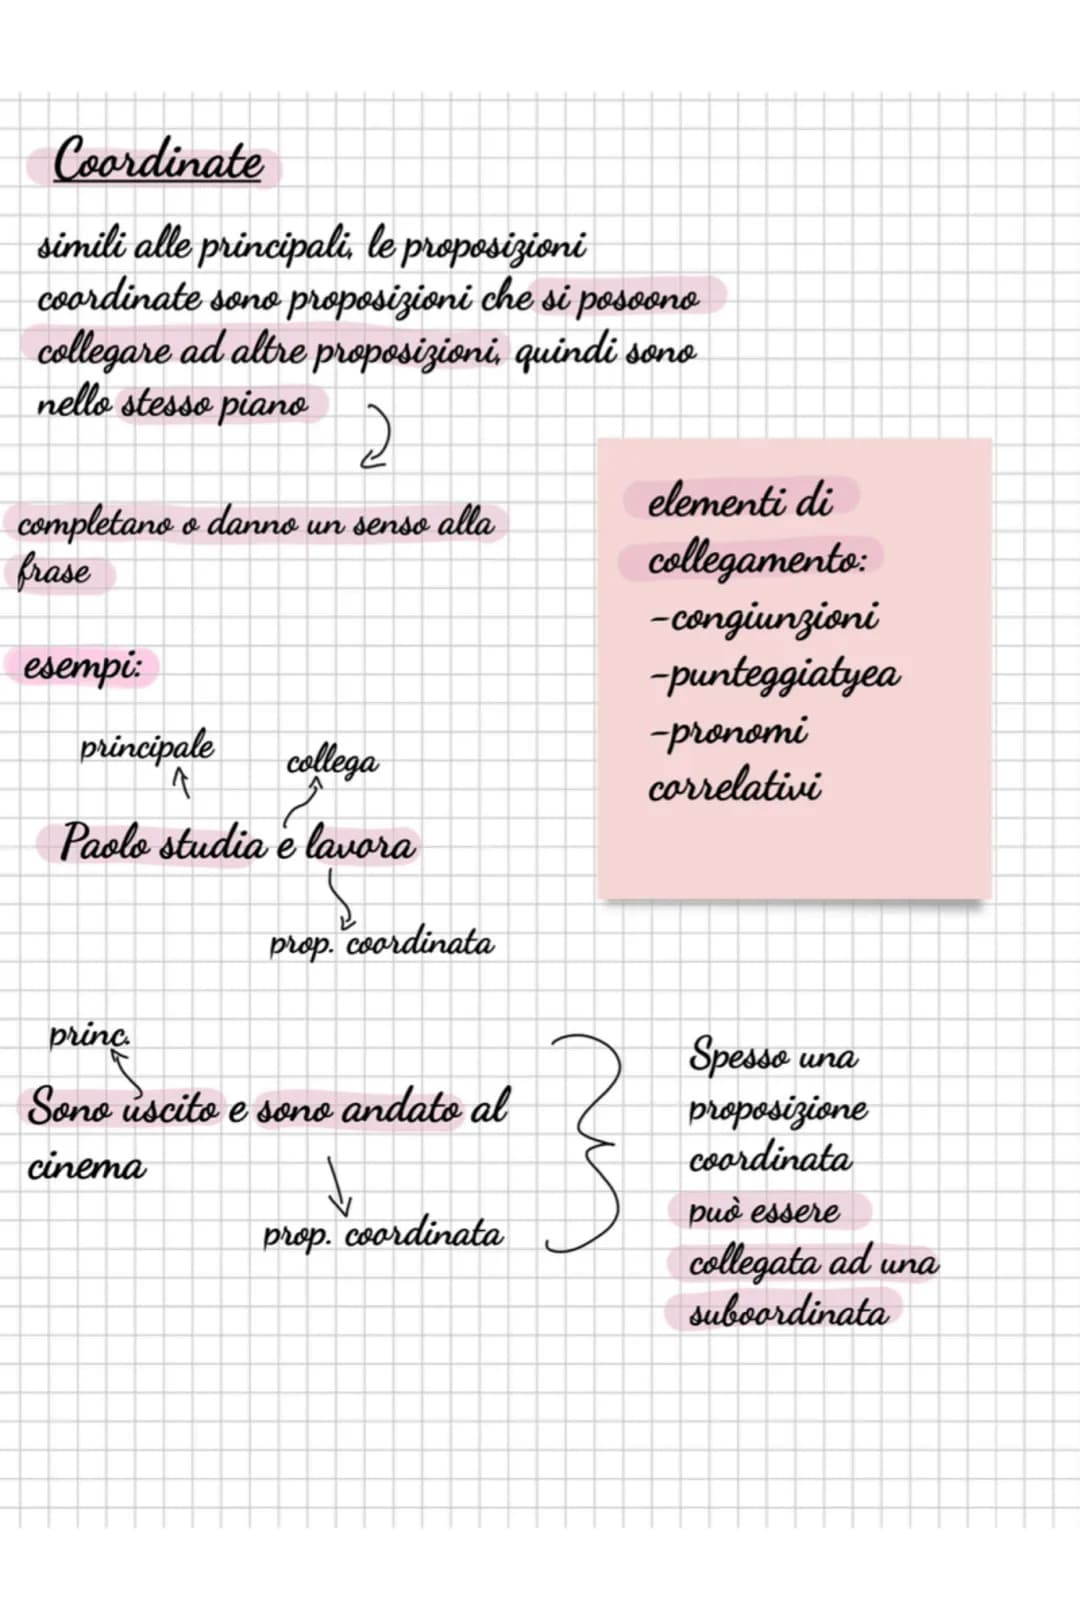 Coordinate
simili alle principali, le proposizioni
coordinate sono proposizioni che si posoono
collegare ad altre proposizioni, quindi sono
nello stesso piano
completano o danno un senso alla
frase
elementi di
collegamento:
-congiunzioni
-punteggiatyea
-pronomi
correlativi
esempi:
principale
collega
Paolo studia e lavora
prop. coordinata
princ.
Sono uscito e sono andato al
cinema
prop. coordinata
Spesso una
proposizione
coordinata
può essere
collegata ad una
suboordinata